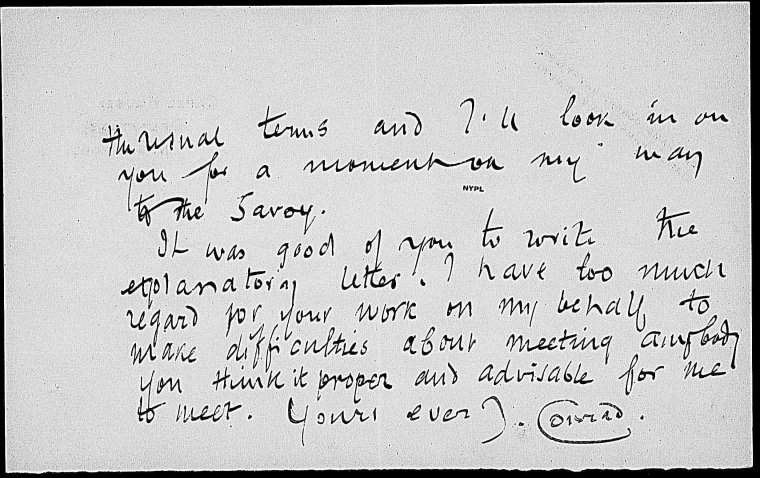 the usual terms and I'll look in on
you for a moment on my way
NYPL
to the Savoy.
It was good of you to write the
explanatory letter. I have too much
regard for your work on my behalf to
make difficulties about meeting anybody
you think it proper and advisable for me
to meet. Yours ever J. Conrad.